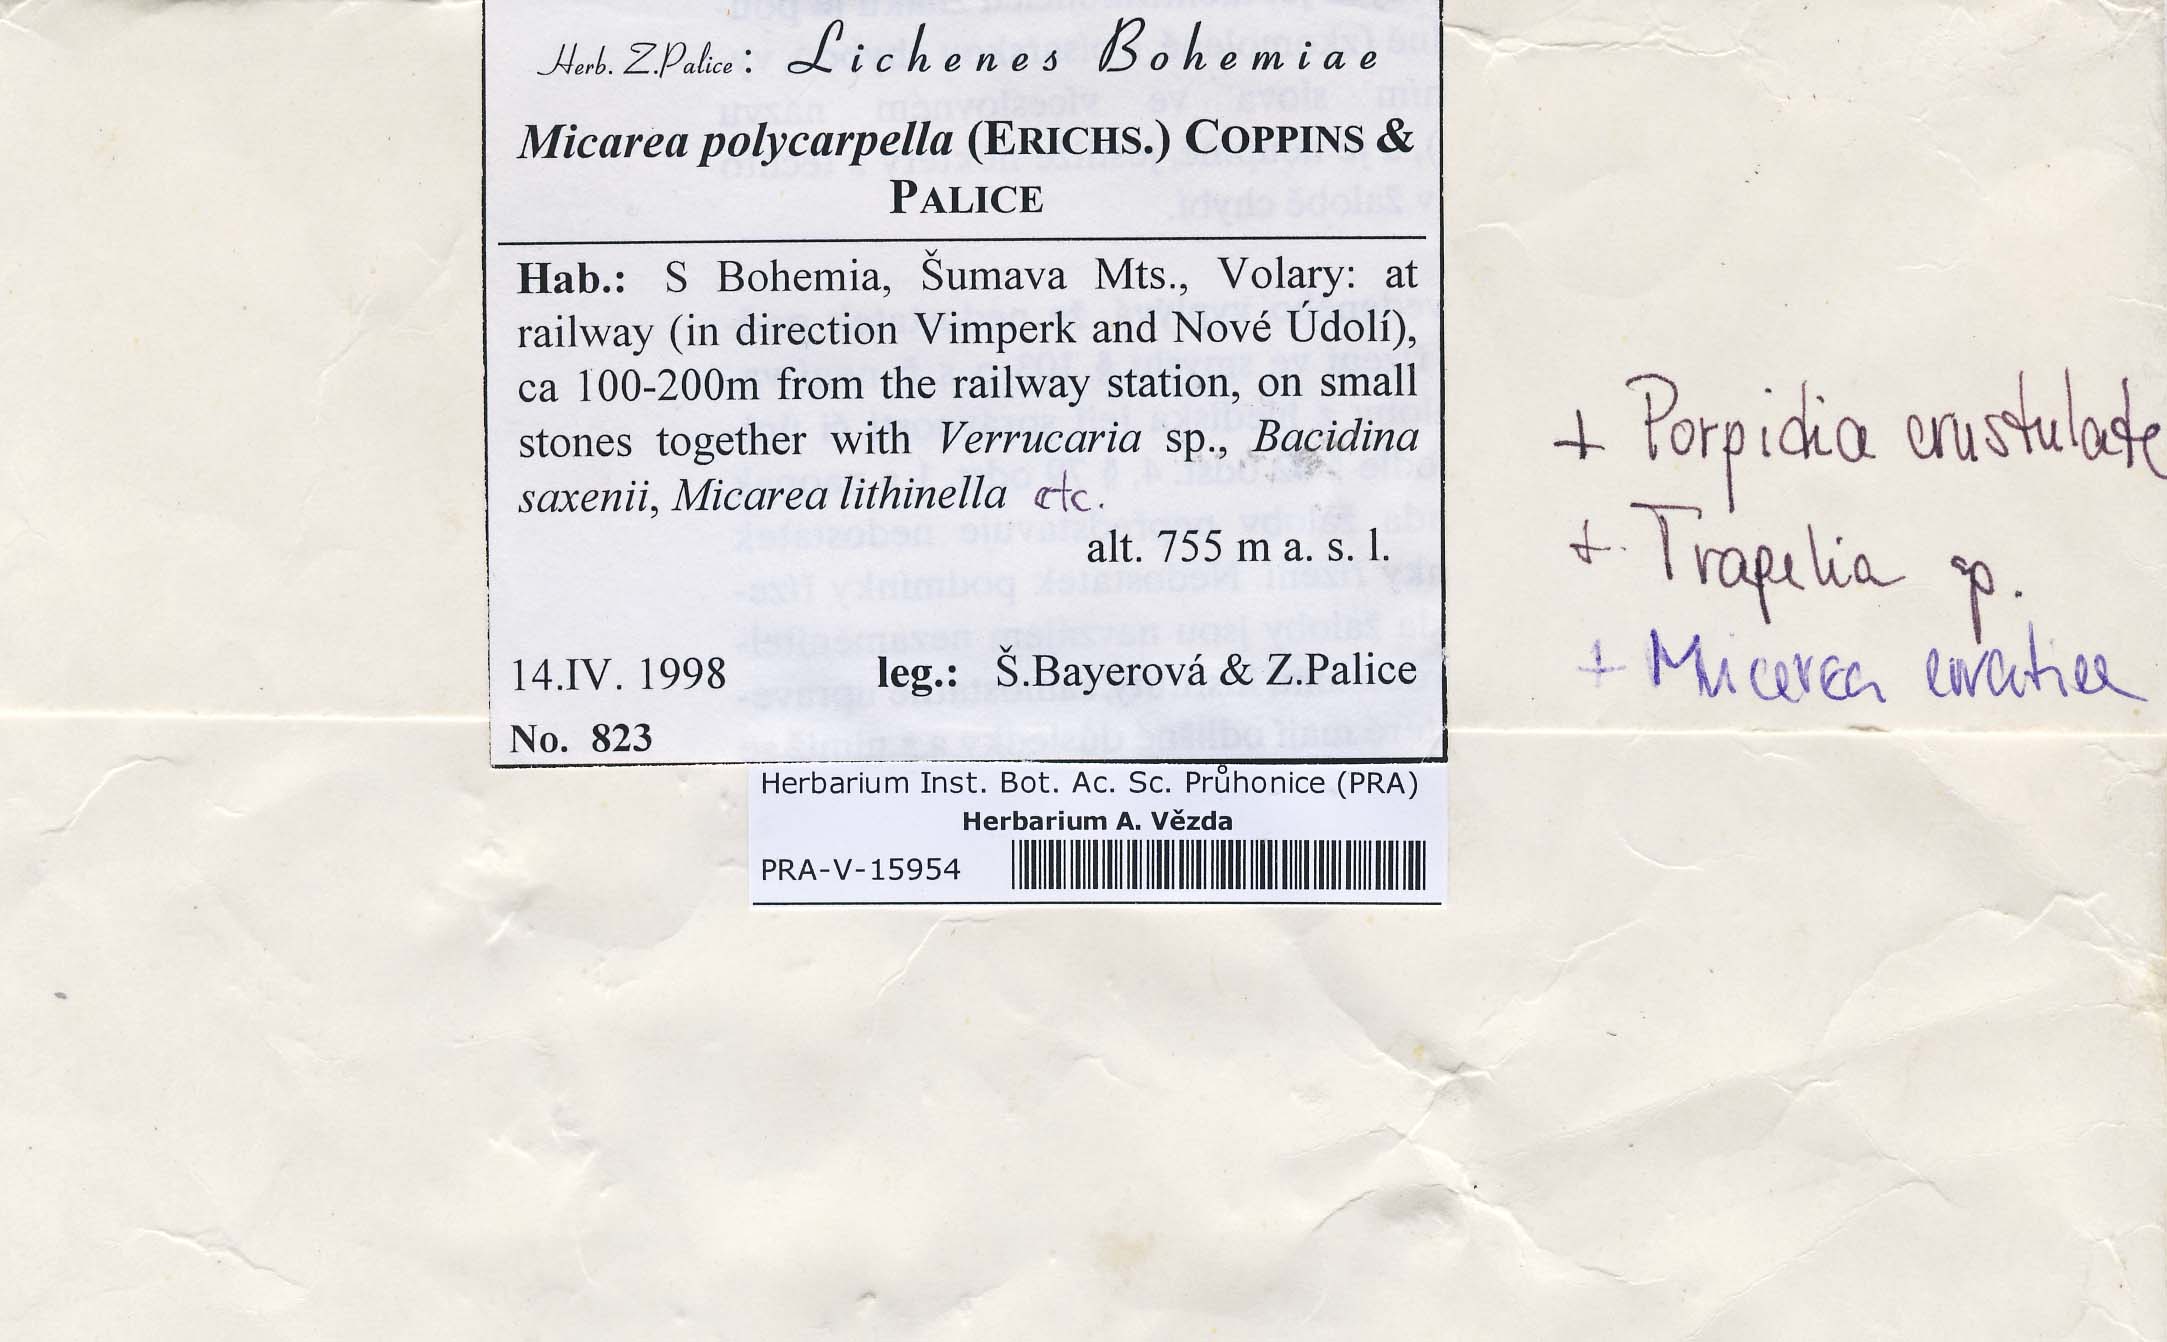 Herb. Z.Palice: Lichenes Bohemiae
Micarea polycarpella (ERICHS.) COPPINS &
PALICE
Hab.: S Bohemia, Šumava Mts., Volary: at
railway (in direction Vimperk and Nové Údolí),
ca 100-200m from the railway station, on small
stones together with Verrucaria sp., Bacidina
saxenii, Micarea lithinella etc.
alt. 755 m a. s. l.
14.IV. 1998 leg.: Š.Bayerová & Z.Palice
No. 823
Herbarium Inst. Bot. Ac. Sc. Průhonice (PRA)
Herbarium A. Vězda
PRA-V-15954
+ Porpidia crustulata
+ Trapelia sp.
+ Micarea erratica